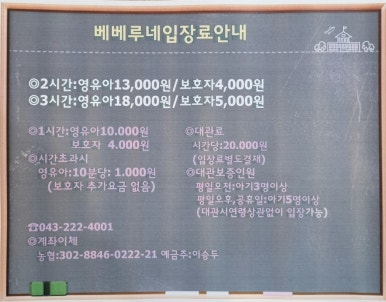 베베루네입장료안내
◎2시간:영유아13,000원/보호자4,000원
◎3시간:영유아18,000원/보호자5,000원
◎1시간:영유아10.000원
보호자 4.000원
◎시간초과시
영유아:10분당: 1.000원
(보호자 추가요금 없음)
◎대관료
시간당:20.000원
(입장료별도결제)
◎대관보증인원
평일오전:아기3명이상
평일오후,공휴일:아기5명이상
(대관시연령상관없이 입장가능)
☎043-222-4001
◎계좌이체
농협:302-8846-0222-21 예금주:이승두